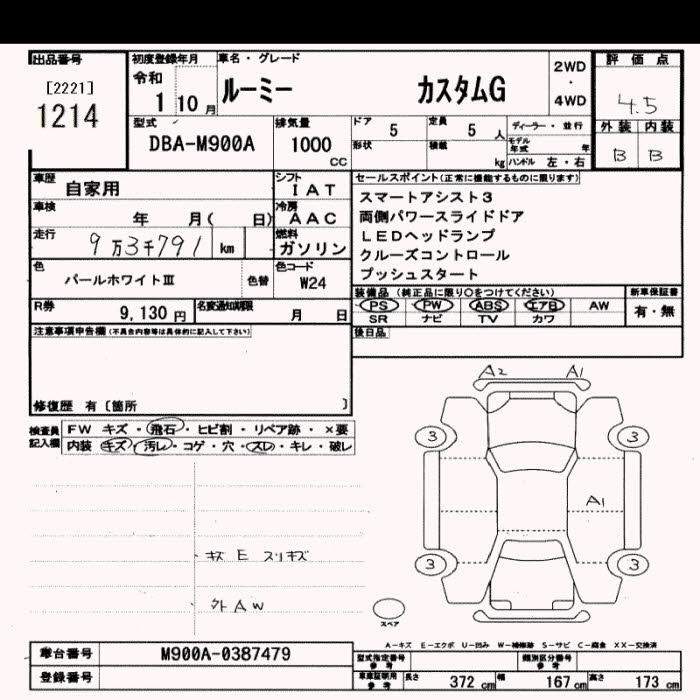 出品番号
[2221]
1214
初度登録年月
令和
1 10 月
車名・グレード
ルーミー カスタムG
2WD
・
4WD
評価点
4.5
外装 内装
B B
型式
DBA-M900A
排気量
1000
cc
ドア
5
定員
5 人
ディーラー・並行
形状
積載
kg
モデル年式 年
ハンドル 左・右
車歴
自家用
シフト
IAT
車検
年 月( 日)
冷房
AAC
走行
9万3千791 km
燃料
ガソリン
色
パールホワイトⅢ
色替
色コード
W24
R券
9,130 円
名変通知期限
月 日
セールスポイント(正常に機能するものに限ります)
スマートアシスト3
両側パワースライドドア
LEDヘッドランプ
クルーズコントロール
プッシュスタート
装備品(純正品に限り○をつけてください)
PS PW ABS エアB AW
SR ナビ TV カワ
新車保証書
有・無
後日品
注意事項申告欄(不具合内容等は具体的に記入して下さい)
修復歴 有〔箇所 〕
検査員記入欄
FW キズ・飛石・ヒビ割・リペア跡・×要
内装 キズ・汚レ・コゲ・穴・スレ・キレ・破レ
キズ E スリキズ
外AW
A2 A1
3 3
A1
3 3
スペア
A-キズ E-エクボ U-凹み W-補修跡 S-サビ C-腐食 XX-交換済
車台番号
M900A-0387479
登録番号
型式指定番号参考
類別区分番号参考
車庫証明用参考
長さ 372 cm 幅 167 cm 高さ 173 cm